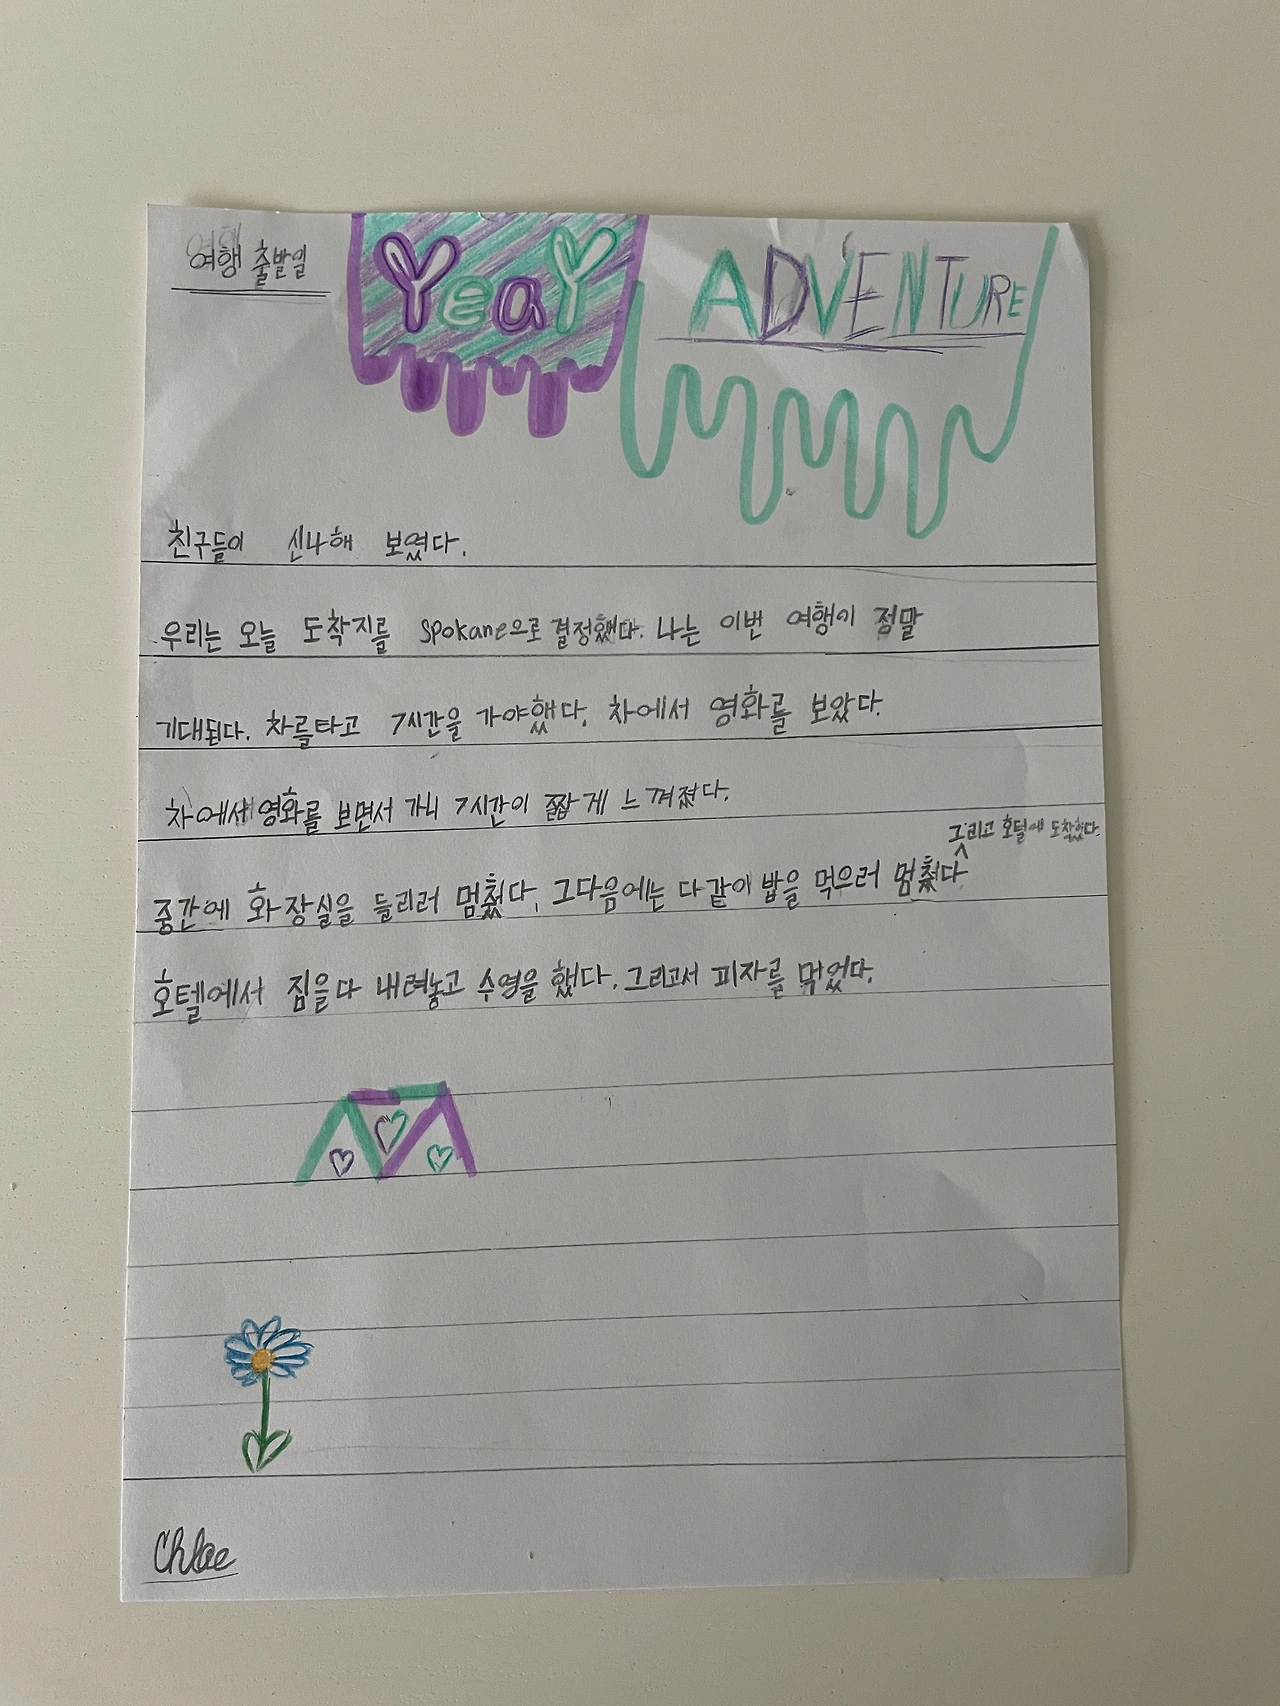 여행 출발일
Yeay
ADVENTURE
친구들이 신나해 보였다.
우리는 오늘 도착지를 Spokane으로 결정했다. 나는 이번 여행이 정말
기대된다. 차를타고 7시간을 가야했다. 차에서 영화를 보았다.
차에서 영화를 보면서 가니 7시간이 짧게 느껴졌다.
그리고 호텔에 도착했다.
중간에 화장실을 들리러 멈췄다. 그다음에는 다같이 밥을 먹으러 멈췄다
호텔에서 짐을다 내려놓고 수영을 했다. 그리고서 피자를 먹었다.
Chloe